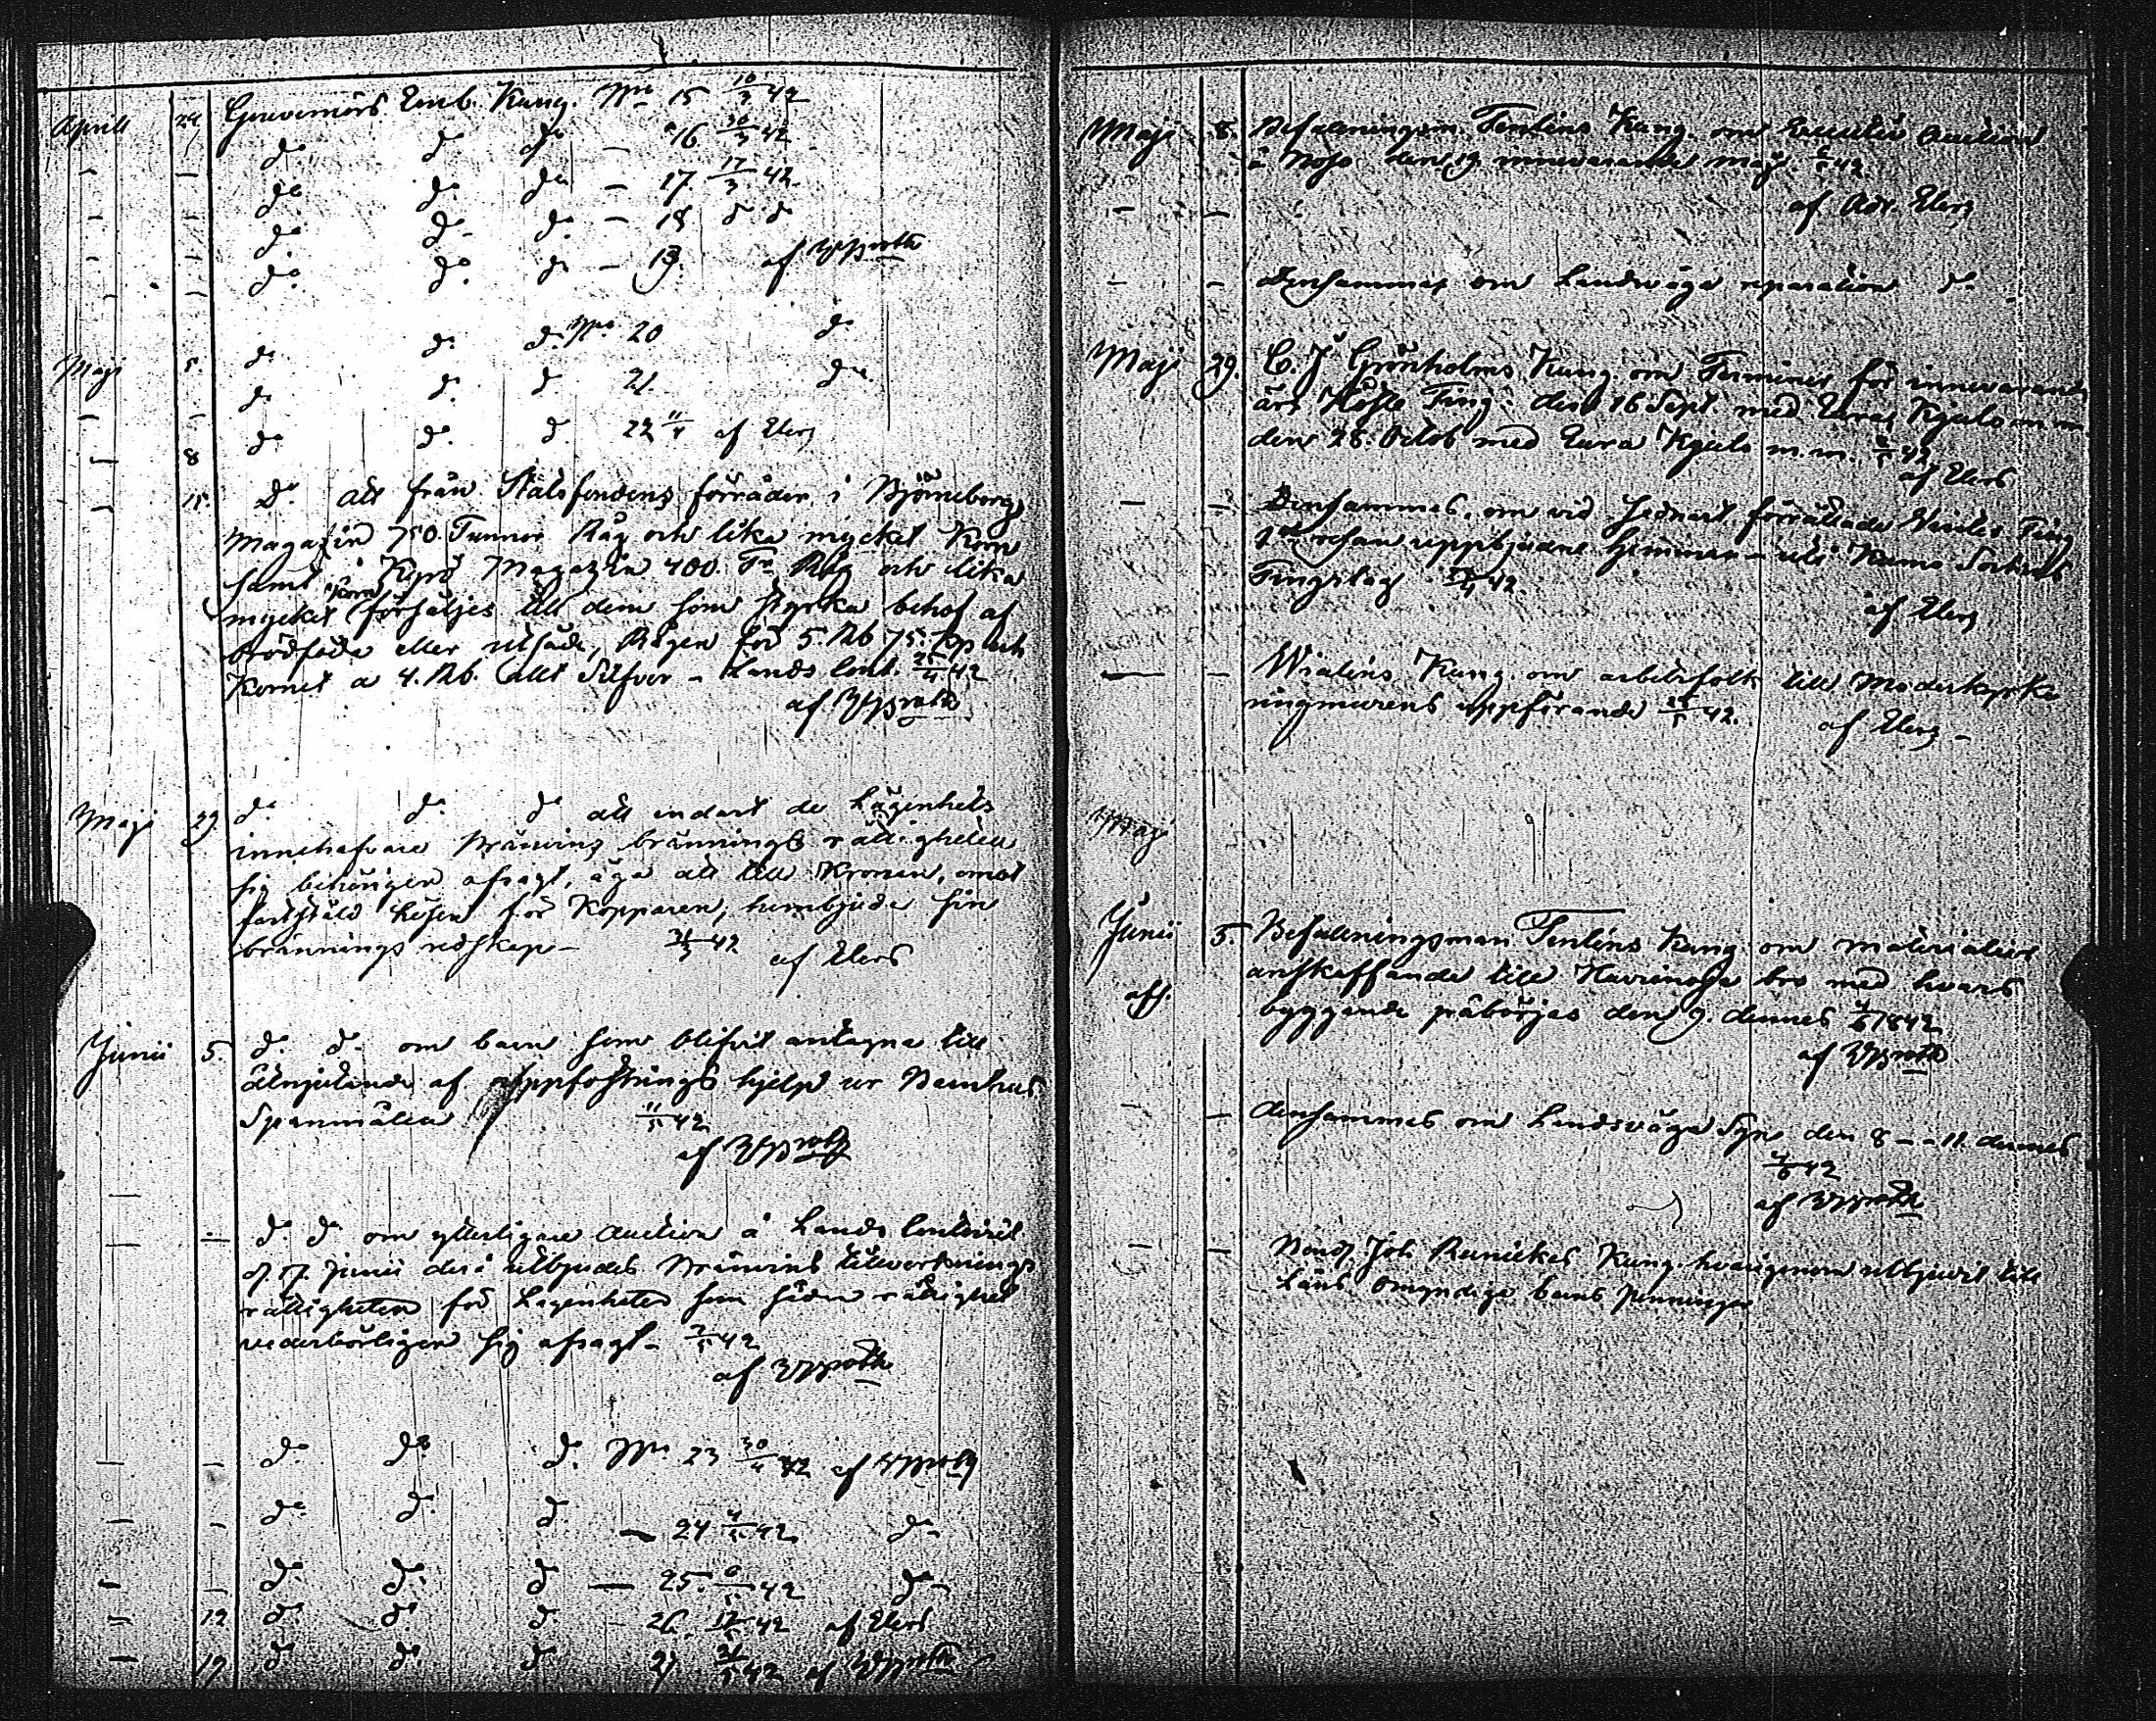 Aprill 24 Gouvernörs Emb. Kung. No 15 10/3 42
— — do do do — 16 10/3 42
— — do do do — 17. 17/3 42.
— — do do do — 18 d d
— — do do do — 19. af
do do do No 20 do
Maji 5. do do do 21. do
— 8 do do do 22 11/4 af Elers
— 15. do att från Statsfondens förråder i Björneborgs
Magazin 750. Tunnor Råg och lika mycket Korn
samt i Magazin 400. Tr Råg och lika
mycket Korn försäljes till dem som styrka behof af
Brödföda eller utsäde, Rågen för 5. Rb 75. Kop och
Kornet a 4. Rb. allt Silfver – Lands Cont. 25/4 42
af
Maji 29. do do do att endast de Lägenhets
innehafvare Bränvins bränningsrättigheten
sig behörigen afsagt, äga att till Kronan, emot
fastställd lösen för Kopparen, hembjuda sin
brännings redskap – 21/5 42 af Elers
Junii 5. do do om barn som blifvit antagna till
åtnjutande af uppfostrings hjelp ur Barnhus
Spanmålen 11/5 42
af
— — do do om ytterligare auction å Lands Contoiret
d. 17. Junii der utbjudes Bränvins tillverknings
rättigheten för Lägenheter som sådan rättighet
vederbörligen sig afsagt – 7/5 42
af
— — do do do No 23 30/4 42 af
— — do do do — 24 4/5 42 do
— — do do do — 25. 6/5 42 do
— 12 do do do — 26. 12/5 42 af Elers
— 19 do do do 27 21/5 42 af
Maji 8. Befallningsm. Tenléns Kung. om auction
å den 19. innevarande maji. 6/5 42.
— — af Adr. Elers
— — Densammes om Landsväga reparation do
Maji 29. C. J Grönholms Kung. om Terminer för innevarande
års Höste Ting: den 16 Sept. med Eura, Kjulo m.m.
den 28. Octob med Eura Kjulo m.m. 42
af Elers
— — Densammes, om vid sednast förrättade Vinter Ting
1sta resan uppbjudne hemman uti Kumo Sockens
Tingslag 42.
af Elers
— — Kung. om arbetsfolk till Moderkyrko
ringmurens uppförande 42.
af Elers –
Maji
Junii 5. Befallningsman Tenléns Kung om materialiers
anskaffande till bro med hvars
aff. byggande påbörjas den 9. dennes 4/6 1842
af
— — densammes om Landsväga Syn den 8 – – 11. dennes
4/6 42
af
— — Joh. Kung. hvarigenom utbjudes till
Låns omyndige barns penningar